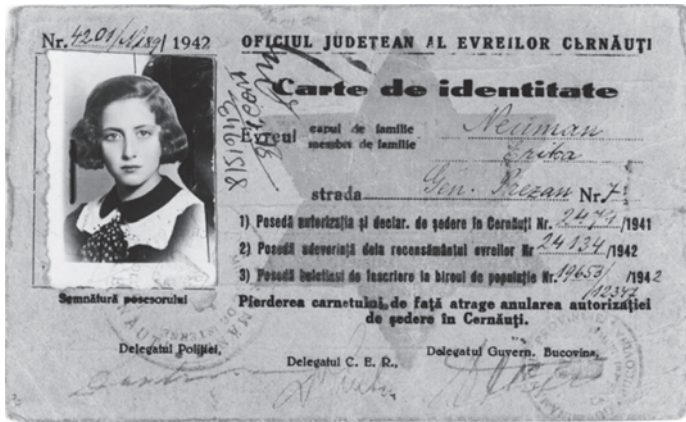 Nr. 4201/N189/1942
OFICIUL JUDEȚEAN AL EVREILOR CERNĂUȚI
Carte de identitate
Evreul capul de familie Neuman
membru de familie Erika
strada Gen. Prezan Nr. 7
1) Posedă autorizația și declar. de ședere în Cernăuți Nr. 2471/1941
2) Posedă adeverință dela recensământul evreilor Nr 24134/1942
3) Posedă buletinul de înscriere la biroul de populație Nr. 19653/1942
/12347
Semnătură posesorului
Pierderea carnetului de față atrage anularea autorizației
de ședere în Cernăuți.
Delegatul Poliției,
Delegatul C. E. R.,
Delegatul Guvern. Bucovina,